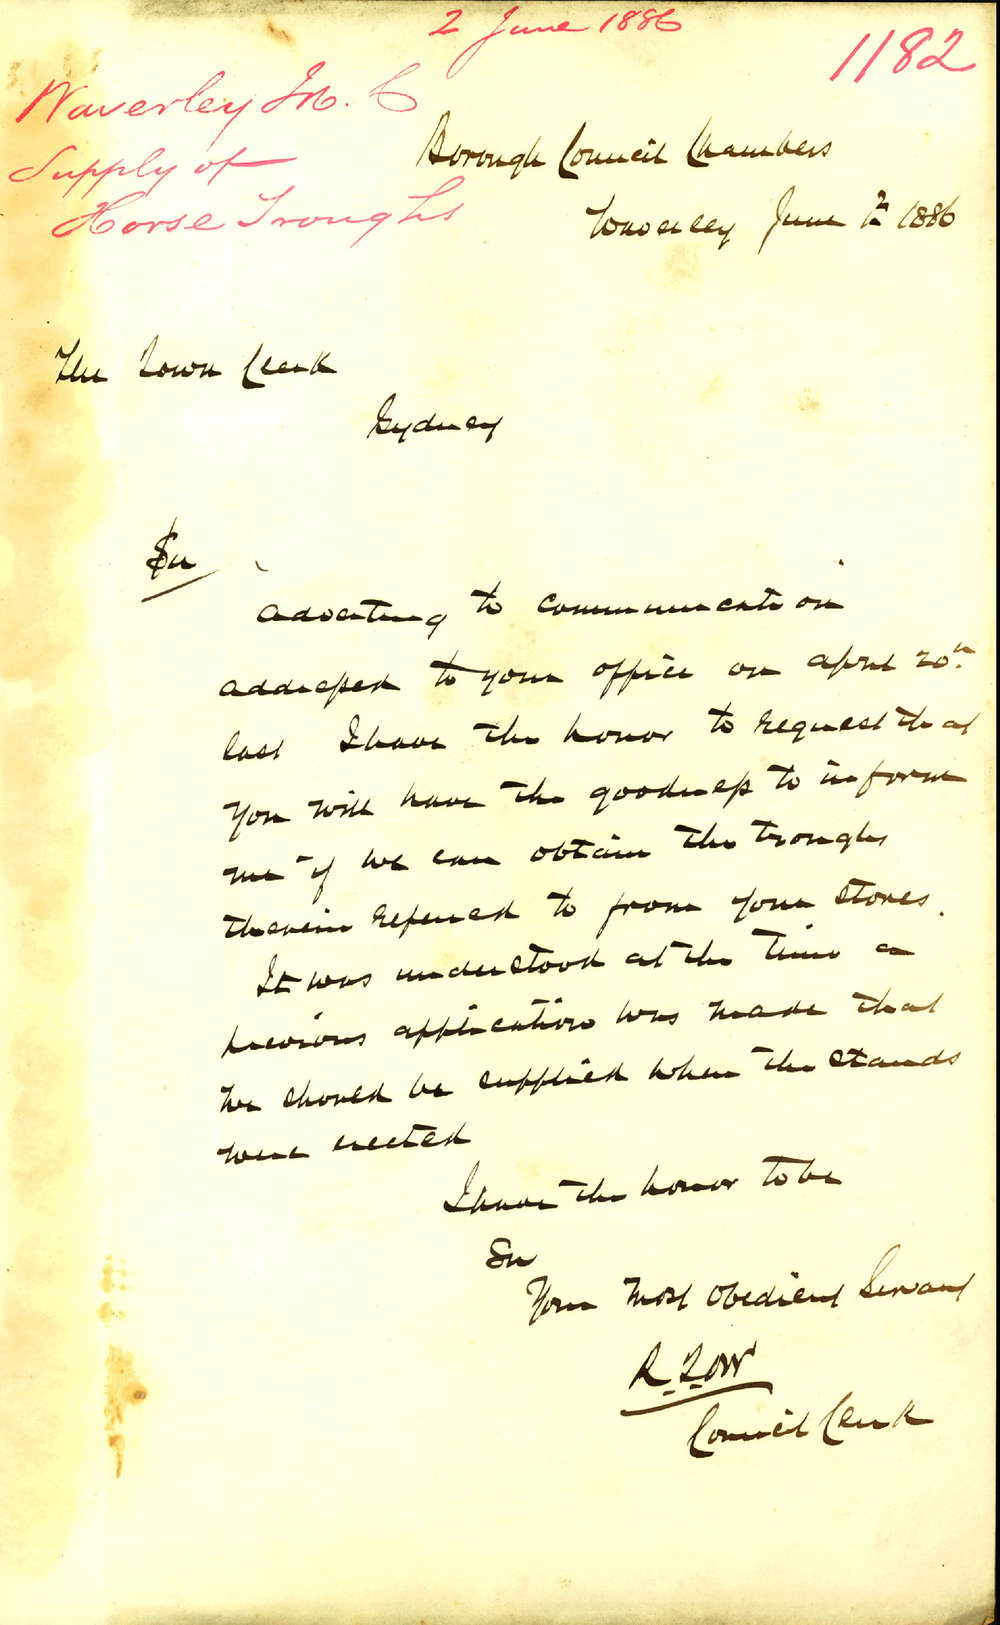 2 June 1886
1182
Waverley M. C
Supply of
Horse Troughs
Borough Council Chambers
Waverley June 1st 1886
The Town Clerk
Sydney
Sir
Adverting to communication
addressed to your office on April 20th
last I have the honor to request that
you will have the goodness to inform
me if we can obtain the troughs
therein referred to from your stores.
It was understood at the time a
previous application was made that
we should be supplied when the stands
were erected
I have the honor to be
Sir
Your Most Obedient Servant
Council Clerk